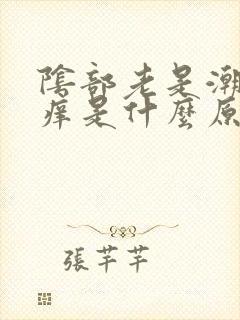 陰部老是潮
痒是什麼原
張芊芊